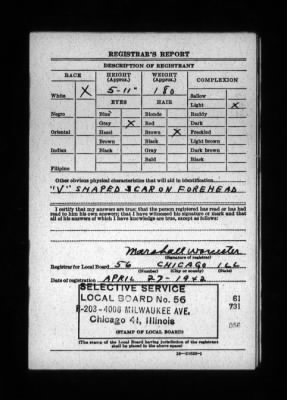 REGISTRAR'S REPORT
DESCRIPTION OF REGISTRANT
RACE HEIGHT (Approx.) WEIGHT (Approx.) COMPLEXION
5-11" 180 Sallow
White X EYES HAIR Light X
Negro Blue Blonde Ruddy
Gray X Red Dark
Oriental Hazel Brown X Freckled
Brown Black Light brown
Indian Black Gray Dark brown
Bald Black
Filipino
Other obvious physical characteristics that will aid in identification
"V" SHAPED SCAR ON FOREHEAD
I certify that my answers are true; that the person registered has read or has had
read to him his own answers; that I have witnessed his signature or mark and that
all of his answers of which I have knowledge are true, except as follows:
Marshall Worcester
(Signature of registrar)
Registrar for Local Board 56 CHICAGO ILL
(Number) (City or county) (State)
Date of registration APRIL 27-1942
SELECTIVE SERVICE
LOCAL BOARD No. 56
R-203-4006 MILWAUKEE AVE.
Chicago 41, Illinois
61
731
056
(STAMP OF LOCAL BOARD)
(The stamp of the Local Board having jurisdiction of the registrant
shall be placed in the above space)